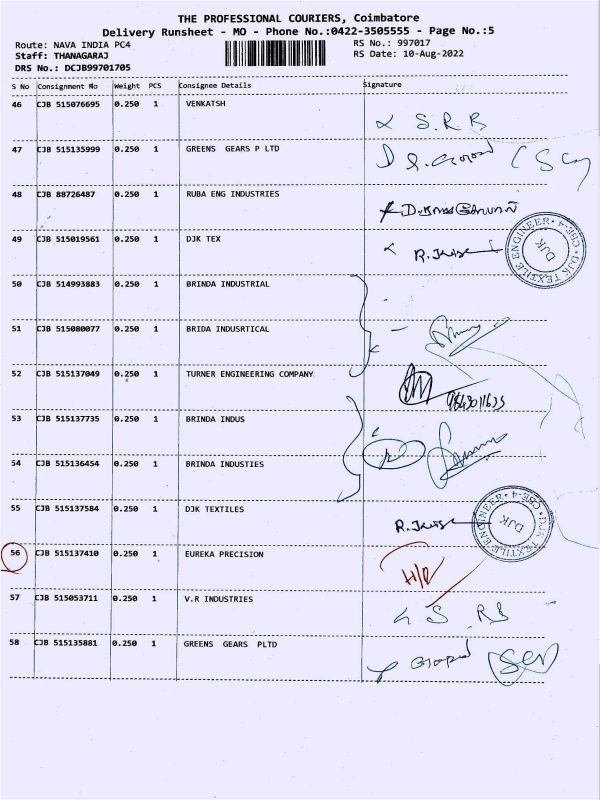 THE PROFESSIONAL COURIERS, Coimbatore
Delivery Runsheet - MO - Phone No.:0422-3505555 - Page No.:5
Route: NAVA INDIA PC4 RS No.: 997017
Staff: THANAGARAJ RS Date: 10-Aug-2022
DRS No.: DCJB99701705
S No Consignment No Weight PCS Consignee Details Signature
46 CJB 515076695 0.250 1 VENKATSH
S.R.B
47 CJB 515135999 0.250 1 GREENS GEARS P LTD
48 CJB 88726487 0.250 1 RUBA ENG INDUSTRIES
49 CJB 515019561 0.250 1 DJK TEX
DJK TEXTILE ENGINEER CBE-4
DJK
50 CJB 514993883 0.250 1 BRINDA INDUSTRIAL
51 CJB 515080077 0.250 1 BRIDA INDUSRTICAL
52 CJB 515137049 0.250 1 TURNER ENGINEERING COMPANY
53 CJB 515137735 0.250 1 BRINDA INDUS
54 CJB 515136454 0.250 1 BRINDA INDUSTIES
55 CJB 515137584 0.250 1 DJK TEXTILES
DJK TEXTILE ENGINEER CBE-4
DJK
56 CJB 515137410 0.250 1 EUREKA PRECISION
57 CJB 515053711 0.250 1 V.R INDUSTRIES
58 CJB 515135881 0.250 1 GREENS GEARS PLTD